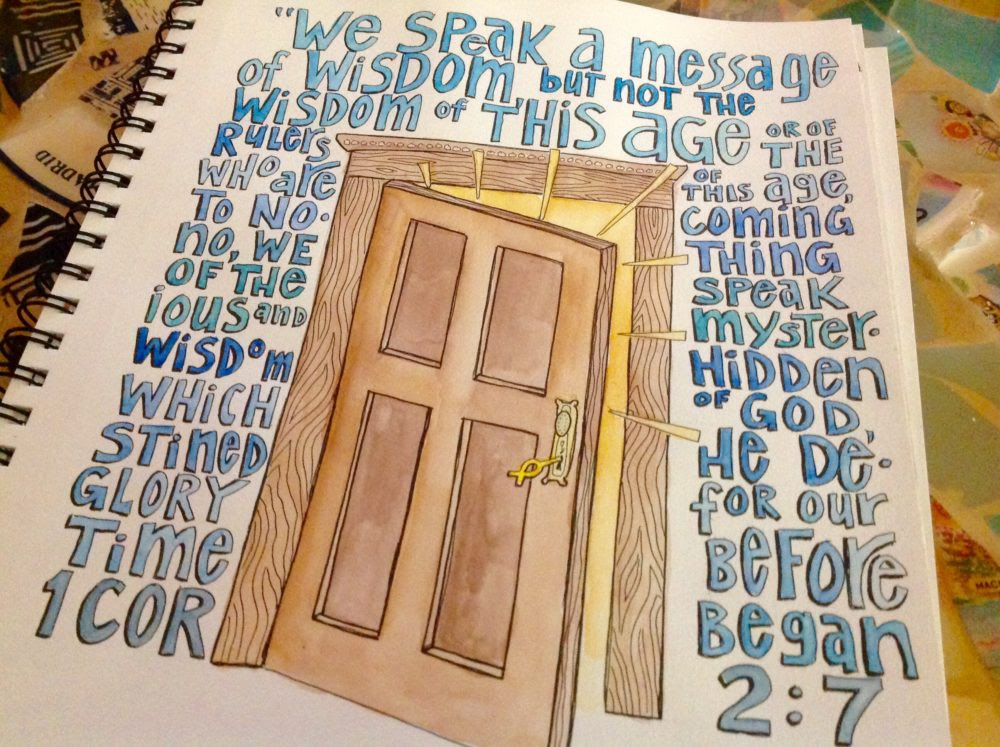 "We SPeAK a message
of WISDOM but not the
WISDOM of THIS age or of
THE
Rulers of THIS age,
WHO are COMING
TO NO- THING
no, WE SPEAK
OF THE MYSTER-
ious and HiDDen
WISDOM OF GOD,
WHICH He De-
STINED for our
GLORY BeFOre
Time Began
1 COR 2:7
MADRID